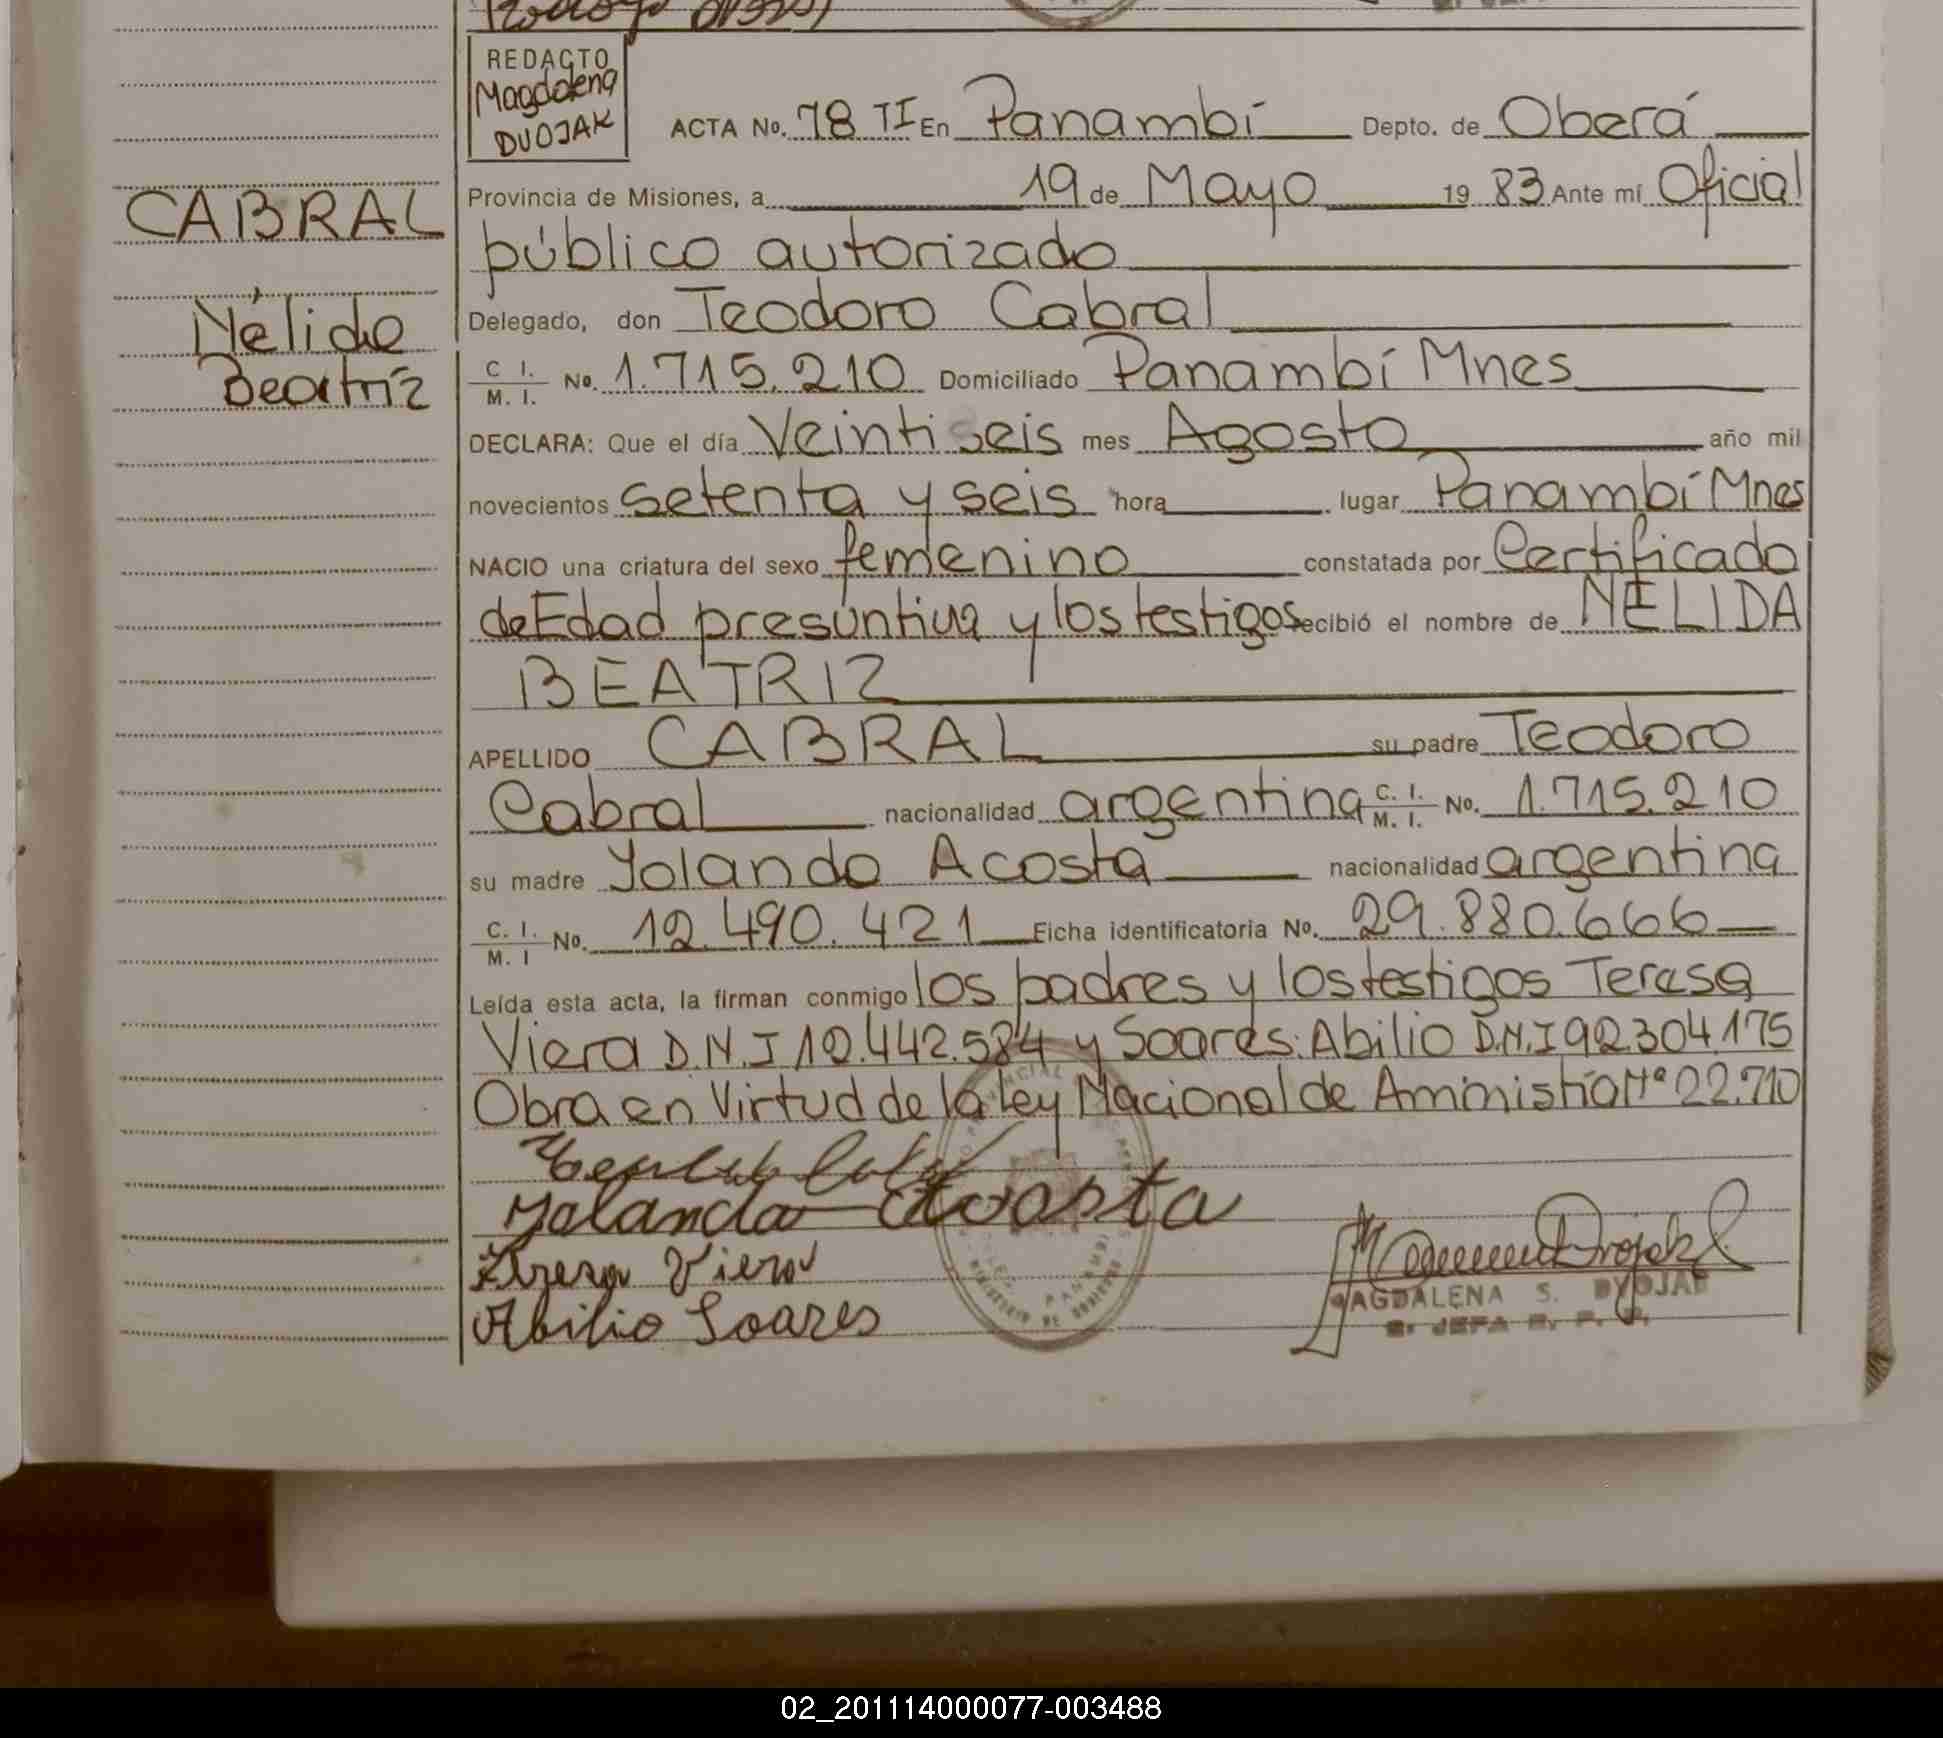 REDACTO
Magdalena
DUOJAK
ACTA No. 78 TI En Panambí Depto. de Oberá
Provincia de Misiones, a 19 de Mayo 19 83 Ante mí Oficial
público autorizado
Delegado, don Teodoro Cabral
C I. / M. I. No. 1.715.210 Domiciliado Panambí Mnes
DECLARA: Que el día Veintiseis mes Agosto año mil
novecientos setenta y seis hora lugar Panambí Mnes
NACIO una criatura del sexo femenino constatada por Certificado
de Edad presuntiva y los testigos recibió el nombre de NELIDA
BEATRIZ
APELLIDO CABRAL su padre Teodoro
Cabral nacionalidad argentina C. I. / M. I. No. 1.715.210
su madre Yolanda Acosta nacionalidad argentina
C. I. / M. I No. 12.490.421 Ficha identificatoria No. 29.880.666
Leída esta acta, la firman conmigo los padres y los testigos Teresa
Viera D.N.I 12.442.584 y Soares: Abilio D.N.I 92.304.175
Obra en Virtud de la Ley Nacional de Aministía Nº 22.710
Yolanda Acosta
Viera
Abilio Soares
MAGDALENA S. DVOJAK
2. JEFA R. P. P.
PANAMBI
CABRAL
Nélida
Beatríz
02_201114000077-003488